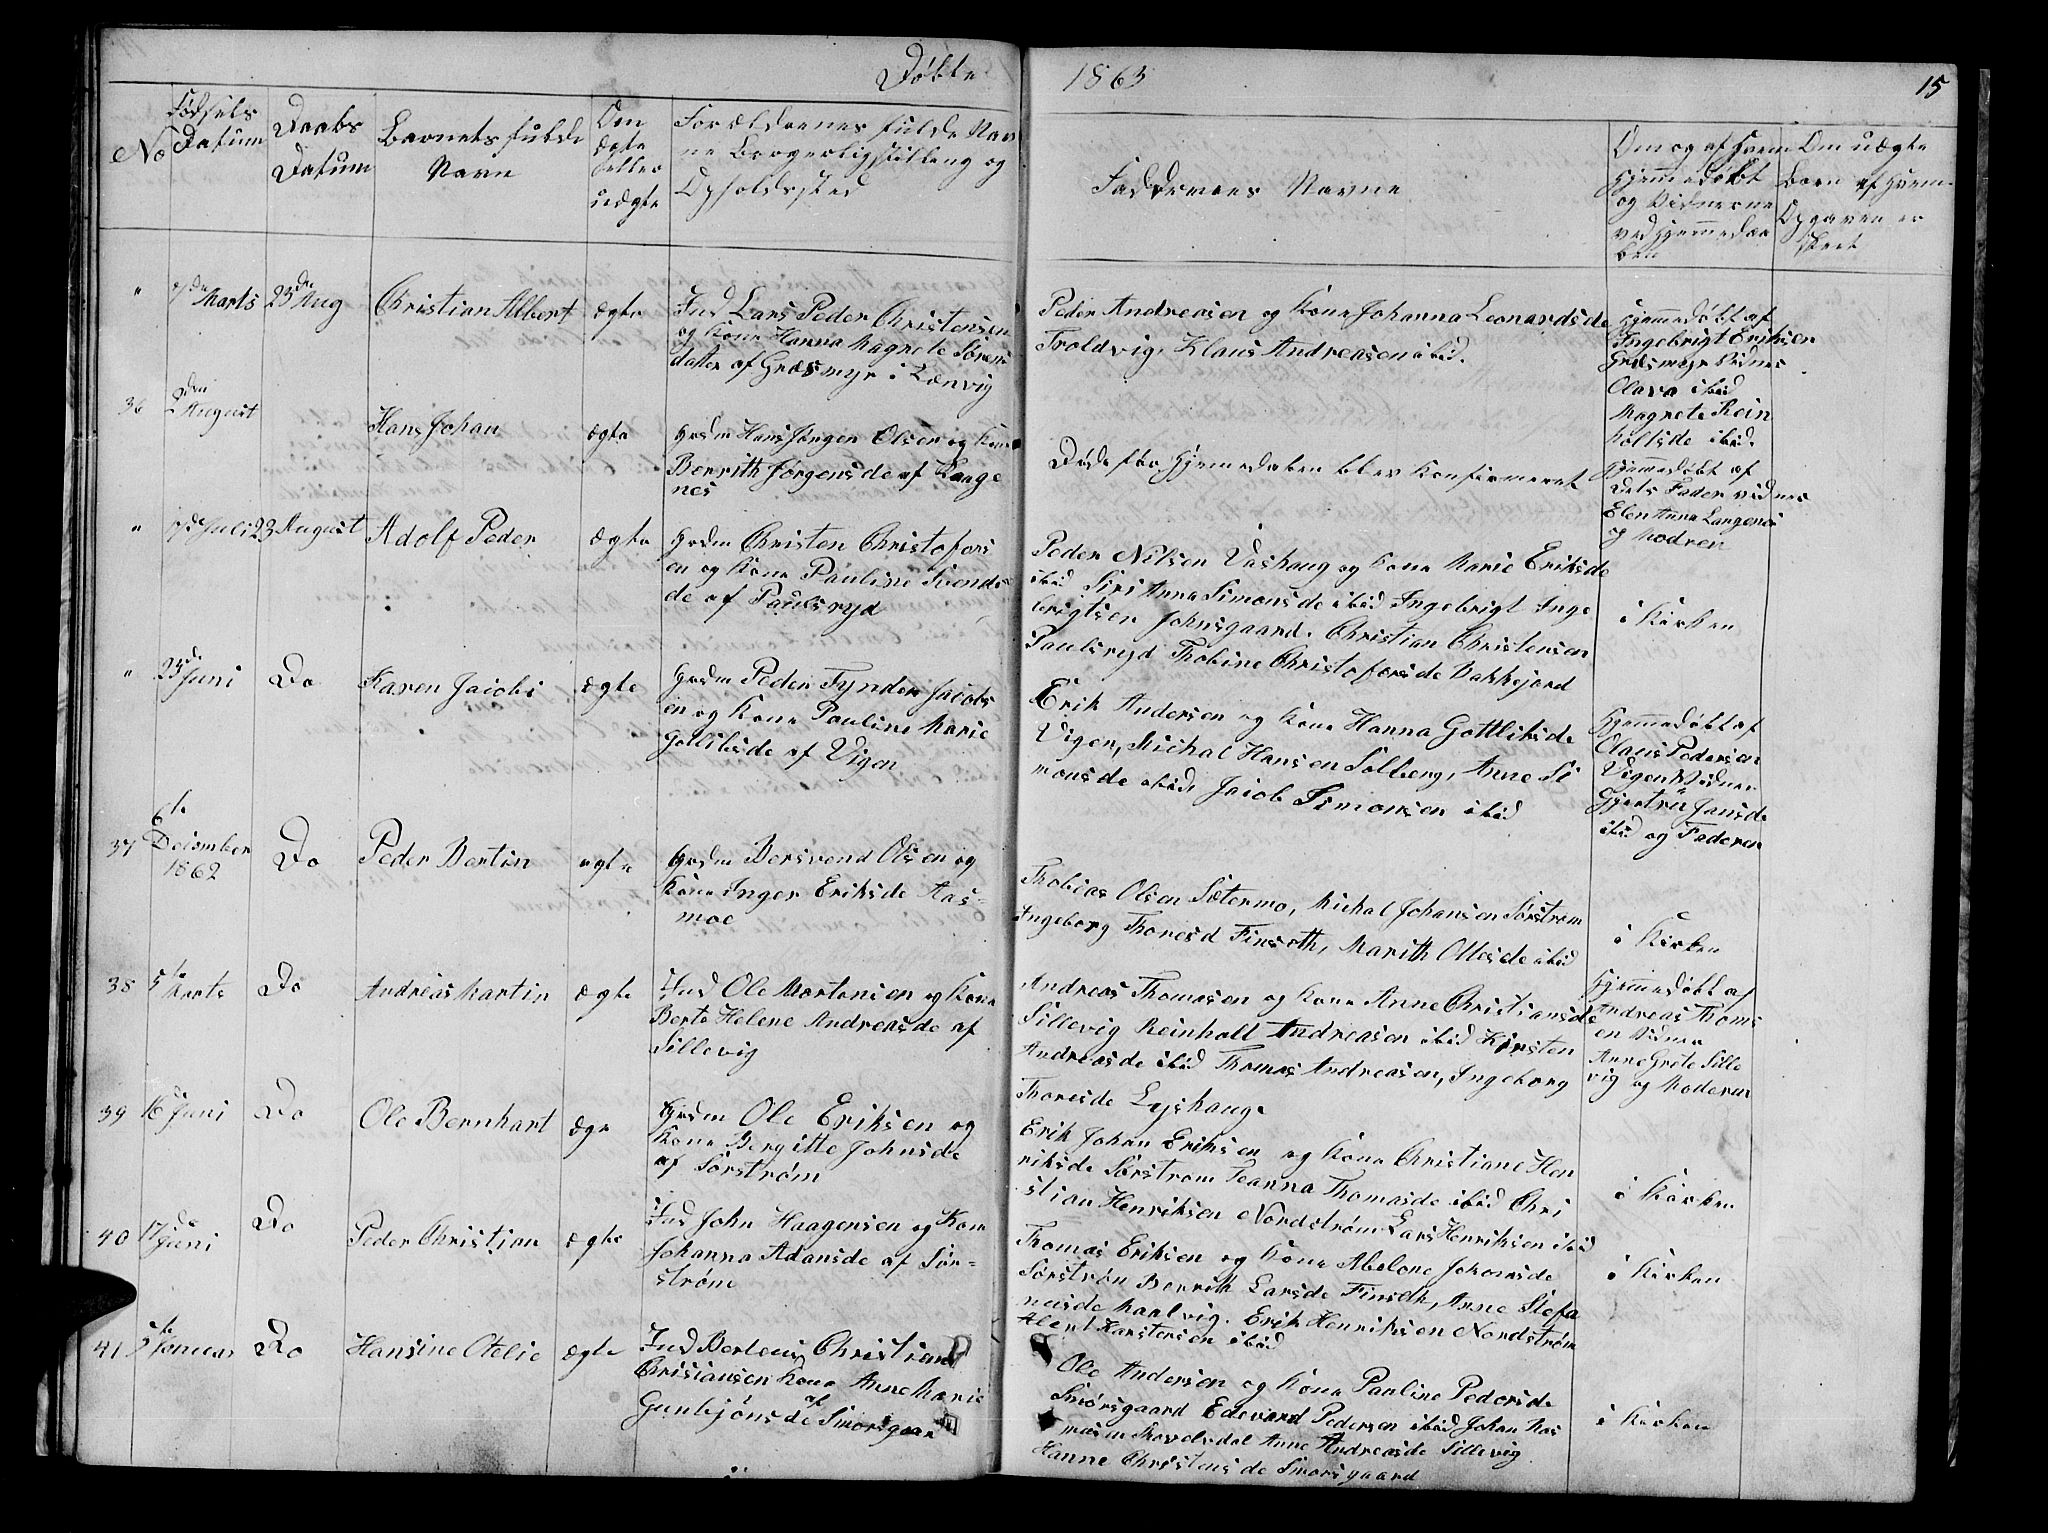 Døbte
1863
15
No
Fødsels
Datum
Daabs
Datum
Barnets fulde
Navn
Om
ægte
eller
uægte
Forældrenes fulde Nav
ne Borgerligstilling og
Opholdssted
Faddernes Navne
Om og af hvem
hjemmedøbt
og Vidnerne
ved hjemmedaa
ben
Om uægte
Børn af hvem
Opgaven er
skeet
" 7de Marts 23de Aug Christian Albert ægte
Ind Lars Peder Christensen
og Kone Hanna Magrete Sørens
datter af Græsmyr i Lenvig
Peder Andreasen og Kone Johanna Leonardsde
Troldvig, Klaus Andreasen ibid.
hjemmedøbt af
Ingebrigt Eriksen
Græsmyr Vidner
Olava ibid
Magrete Rein
holtsde ibid.
36 2den August Hans Johan ægte
Grdm Hans Jørgen Olsen og Kone
Berrith Jørgensde af Kaage
nes
Døde før hjemedaaben blev Konfirmeret
hjemmedøbt af
dets Fader vidner
Elen Anna Langenes
og Modren
" 7de Juli 23 August Adolf Peder ægte
Grdm Christen Christofers
en og Kone Pauline Svends
de af Paulsryd
Peder Nilsen Vashaug og Kone Marie Eriksde
ibid Siri Anna Simonsde ibid Ingebrigt Inge
brigtsen Johnsgaard. Christian Christensen
Paulsryd Thobine Christofersde Bakkejord
i Kirken
" 23de Juni Do Karen Jacobi ægte
Grdm Peder Fynder Jacobs
en og Kone Pauline Marie
Gotlibsde af Vigen
Erik Andersen og Kone Hanna Gottlibsde
Vigen, Michal Hansen Solberg, Anne Si
monsde ibid, Jacob Simonsen ibid
hjemmedøbt af
Olaus Pedersen
Vigen Vidner
Gjertru Jansde
ibid og Faderen
37 6te December 1862 Do Peder Bertin ægte
Grdm Bersvend Olsen og
Kone Inger Eriksde Aas-
moe
Thobias Olsen Sætermo, Michal Johansen Sørstrøm
Ingeborg Thoresd Finseth, Marith Olesde ibid
i Kirken
38 5te Marts Do Andreas Martin ægte
Ind Ole Mortensen og Kone
Berte Helene Andreasde af
Sillevig
Andreas Thomasen og Kone Anne Christiansde
Sillevig Reinholt Andreasen ibid Kirsten
Andreasde ibid Thomas Andreasen, Ingeborg
Thoresde Lyshaug.
hjemmedøbt af
Andreas Thoms
en Vidner
Anne Grete Sille
vig og Moderen
39 16de Juni Do Ole Bernhart ægte
Grdm Ole Eriksen og
Kone Bergitte Johnsde
af Sørstrøm
Erik Johan Eriksen og Kone Christiane Hen
riksde Sørstrøm Jeanna Thomasde ibid Chri
stian Henriksen Nordstrøm Lars Henriksen ibid
i Kirken
40 17de Juni Do Peder Christian ægte
Ind John Haagensen og Kone
Johanna Adamsde af Sør-
strøm
Thomas Eriksen og Kone Abelone Johansde
Sørstrøm Berrith Larsde Finseth, Anne Stefa
nusde Maalvig. Erik Henriksen Nordstrøm
Albert Karstensen ibid
i Kirken
41 5te Januar Do Hansine Otelie ægte
Ind Berteus Christian
Chrisiansen Kone Anne Marie
Gunbjønsde af Smorsgaar
Ole Andersen og Kone Pauline Pedersde
Smørsgaard Edevard Pedersen ibid Johan Ras
musen Skovelvdal Anne Andreasde Sillevig
Hanne Christensde Smorsgaard
i Kirken